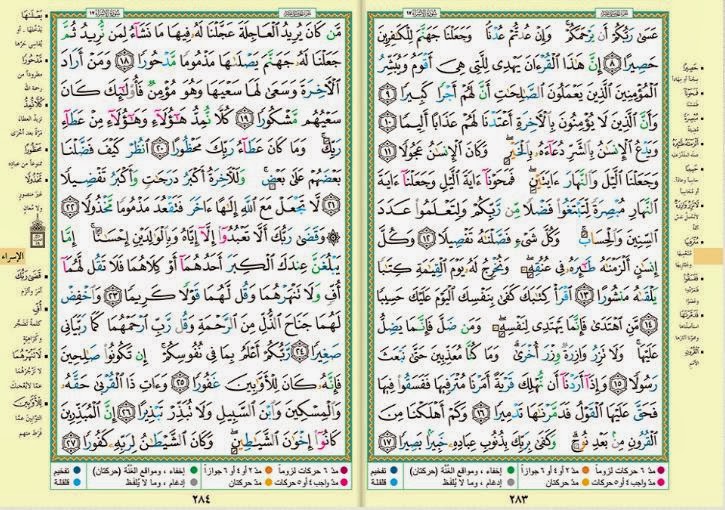 سُورَةُ الإِسْرَاء ١٧
عَسَىٰ رَبُّكُمْ أَن يَرْحَمَكُمْ ۚ وَإِنْ عُدتُّمْ عُدْنَا ۘ وَجَعَلْنَا جَهَنَّمَ لِلْكَٰفِرِينَ
حَصِيرًا ٨ إِنَّ هَٰذَا ٱلْقُرْءَانَ يَهْدِى لِلَّتِى هِىَ أَقْوَمُ وَيُبَشِّرُ
ٱلْمُؤْمِنِينَ ٱلَّذِينَ يَعْمَلُونَ ٱلصَّٰلِحَٰتِ أَنَّ لَهُمْ أَجْرًا كَبِيرًا ٩
وَأَنَّ ٱلَّذِينَ لَا يُؤْمِنُونَ بِٱلْءَاخِرَةِ أَعْتَدْنَا لَهُمْ عَذَابًا أَلِيمًا ١٠
وَيَدْعُ ٱلْإِنسَٰنُ بِٱلشَّرِّ دُعَآءَهُۥ بِٱلْخَيْرِ ۖ وَكَانَ ٱلْإِنسَٰنُ عَجُولًا ١١
وَجَعَلْنَا ٱلَّيْلَ وَٱلنَّهَارَ ءَايَتَيْنِ ۖ فَمَحَوْنَآ ءَايَةَ ٱلَّيْلِ وَجَعَلْنَآ ءَايَةَ
ٱلنَّهَارِ مُبْصِرَةً لِّتَبْتَغُوا۟ فَضْلًا مِّن رَّبِّكُمْ وَلِتَعْلَمُوا۟ عَدَدَ
ٱلسِّنِينَ وَٱلْحِسَابَ ۚ وَكُلَّ شَىْءٍ فَصَّلْنَٰهُ تَفْصِيلًا ١٢ وَكُلَّ
إِنسَٰنٍ أَلْزَمْنَٰهُ طَٰٓئِرَهُۥ فِى عُنُقِهِۦ ۖ وَنُخْرِجُ لَهُۥ يَوْمَ ٱلْقِيَٰمَةِ كِتَٰبًا
يَلْقَىٰهُ مَنشُورًا ١٣ ٱقْرَأْ كِتَٰبَكَ كَفَىٰ بِنَفْسِكَ ٱلْيَوْمَ عَلَيْكَ حَسِيبًا
١٤ مَّنِ ٱهْتَدَىٰ فَإِنَّمَا يَهْتَدِى لِنَفْسِهِۦ ۖ وَمَن ضَلَّ فَإِنَّمَا يَضِلُّ
عَلَيْهَا ۚ وَلَا تَزِرُ وَازِرَةٌ وِزْرَ أُخْرَىٰ ۗ وَمَا كُنَّا مُعَذِّبِينَ حَتَّىٰ نَبْعَثَ
رَسُولًا ١٥ وَإِذَآ أَرَدْنَآ أَن نُّهْلِكَ قَرْيَةً أَمَرْنَا مُتْرَفِيهَا فَفَسَقُوا۟ فِيهَا
فَحَقَّ عَلَيْهَا ٱلْقَوْلُ فَدَمَّرْنَٰهَا تَدْمِيرًا ١٦ وَكَمْ أَهْلَكْنَا مِنَ
ٱلْقُرُونِ مِنۢ بَعْدِ نُوحٍ ۗ وَكَفَىٰ بِرَبِّكَ بِذُنُوبِ عِبَادِهِۦ خَبِيرًۢا بَصِيرًا ١٧
مدّ ٦ حركات لزوماً مدّ ٢ أو ٤ أو ٦ جوازاً إخفاء، ومواقع الغُنَّة (حركتان) تفخيم
مدّ واجب ٤ أو ٥ حركات مدّ حركتان إدغام، وما لا يُلفَظ قلقلة
٢٨٣
سُورَةُ الإِسْرَاء ١٧
مَّن كَانَ يُرِيدُ ٱلْعَاجِلَةَ عَجَّلْنَا لَهُۥ فِيهَا مَا نَشَآءُ لِمَن نُّرِيدُ ثُمَّ
جَعَلْنَا لَهُۥ جَهَنَّمَ يَصْلَىٰهَا مَذْمُومًا مَّدْحُورًا ١٨ وَمَنْ أَرَادَ
ٱلْءَاخِرَةَ وَسَعَىٰ لَهَا سَعْيَهَا وَهُوَ مُؤْمِنٌ فَأُو۟لَٰٓئِكَ كَانَ
سَعْيُهُم مَّشْكُورًا ١٩ كُلًّا نُّمِدُّ هَٰٓؤُلَآءِ وَهَٰٓؤُلَآءِ مِنْ عَطَآءِ
رَبِّكَ ۚ وَمَا كَانَ عَطَآءُ رَبِّكَ مَحْظُورًا ٢٠ ٱنظُرْ كَيْفَ فَضَّلْنَا
بَعْضَهُمْ عَلَىٰ بَعْضٍ ۚ وَلَلْءَاخِرَةُ أَكْبَرُ دَرَجَٰتٍ وَأَكْبَرُ تَفْضِيلًا
٢١ لَّا تَجْعَلْ مَعَ ٱللَّهِ إِلَٰهًا ءَاخَرَ فَتَقْعُدَ مَذْمُومًا مَّخْذُولًا ٢٢
۞ وَقَضَىٰ رَبُّكَ أَلَّا تَعْبُدُوٓا۟ إِلَّآ إِيَّاهُ وَبِٱلْوَٰلِدَيْنِ إِحْسَٰنًا ۚ إِمَّا
يَبْلُغَنَّ عِندَكَ ٱلْكِبَرَ أَحَدُهُمَآ أَوْ كِلَاهُمَا فَلَا تَقُل لَّهُمَآ
أُفٍّ وَلَا تَنْهَرْهُمَا وَقُل لَّهُمَا قَوْلًا كَرِيمًا ٢٣ وَٱخْفِضْ
لَهُمَا جَنَاحَ ٱلذُّلِّ مِنَ ٱلرَّحْمَةِ وَقُل رَّبِّ ٱرْحَمْهُمَا كَمَا رَبَّيَانِى
صَغِيرًا ٢٤ رَّبُّكُمْ أَعْلَمُ بِمَا فِى نُفُوسِكُمْ ۚ إِن تَكُونُوا۟ صَٰلِحِينَ
فَإِنَّهُۥ كَانَ لِلْأَوَّٰبِينَ غَفُورًا ٢٥ وَءَاتِ ذَا ٱلْقُرْبَىٰ حَقَّهُۥ
وَٱلْمِسْكِينَ وَٱبْنَ ٱلسَّبِيلِ وَلَا تُبَذِّرْ تَبْذِيرًا ٢٦ إِنَّ ٱلْمُبَذِّرِينَ
كَانُوٓا۟ إِخْوَٰنَ ٱلشَّيَٰطِينِ ۖ وَكَانَ ٱلشَّيْطَٰنُ لِرَبِّهِۦ كَفُورًا ٢٧
مدّ ٦ حركات لزوماً مدّ ٢ أو ٤ أو ٦ جوازاً إخفاء، ومواقع الغُنَّة (حركتان) تفخيم
مدّ واجب ٤ أو ٥ حركات مدّ حركتان إدغام، وما لا يُلفَظ قلقلة
٢٨٤
يَصْلَىٰهَا
مَدْحُورًا
كُلًّا نُّمِدُّ
مَحْظُورًا
مَخْذُولًا
الإسراء
قَضَىٰ رَبُّكَ
أُفٍّ
لَا تَنْهَرْهُمَا
لِلْأَوَّٰبِينَ